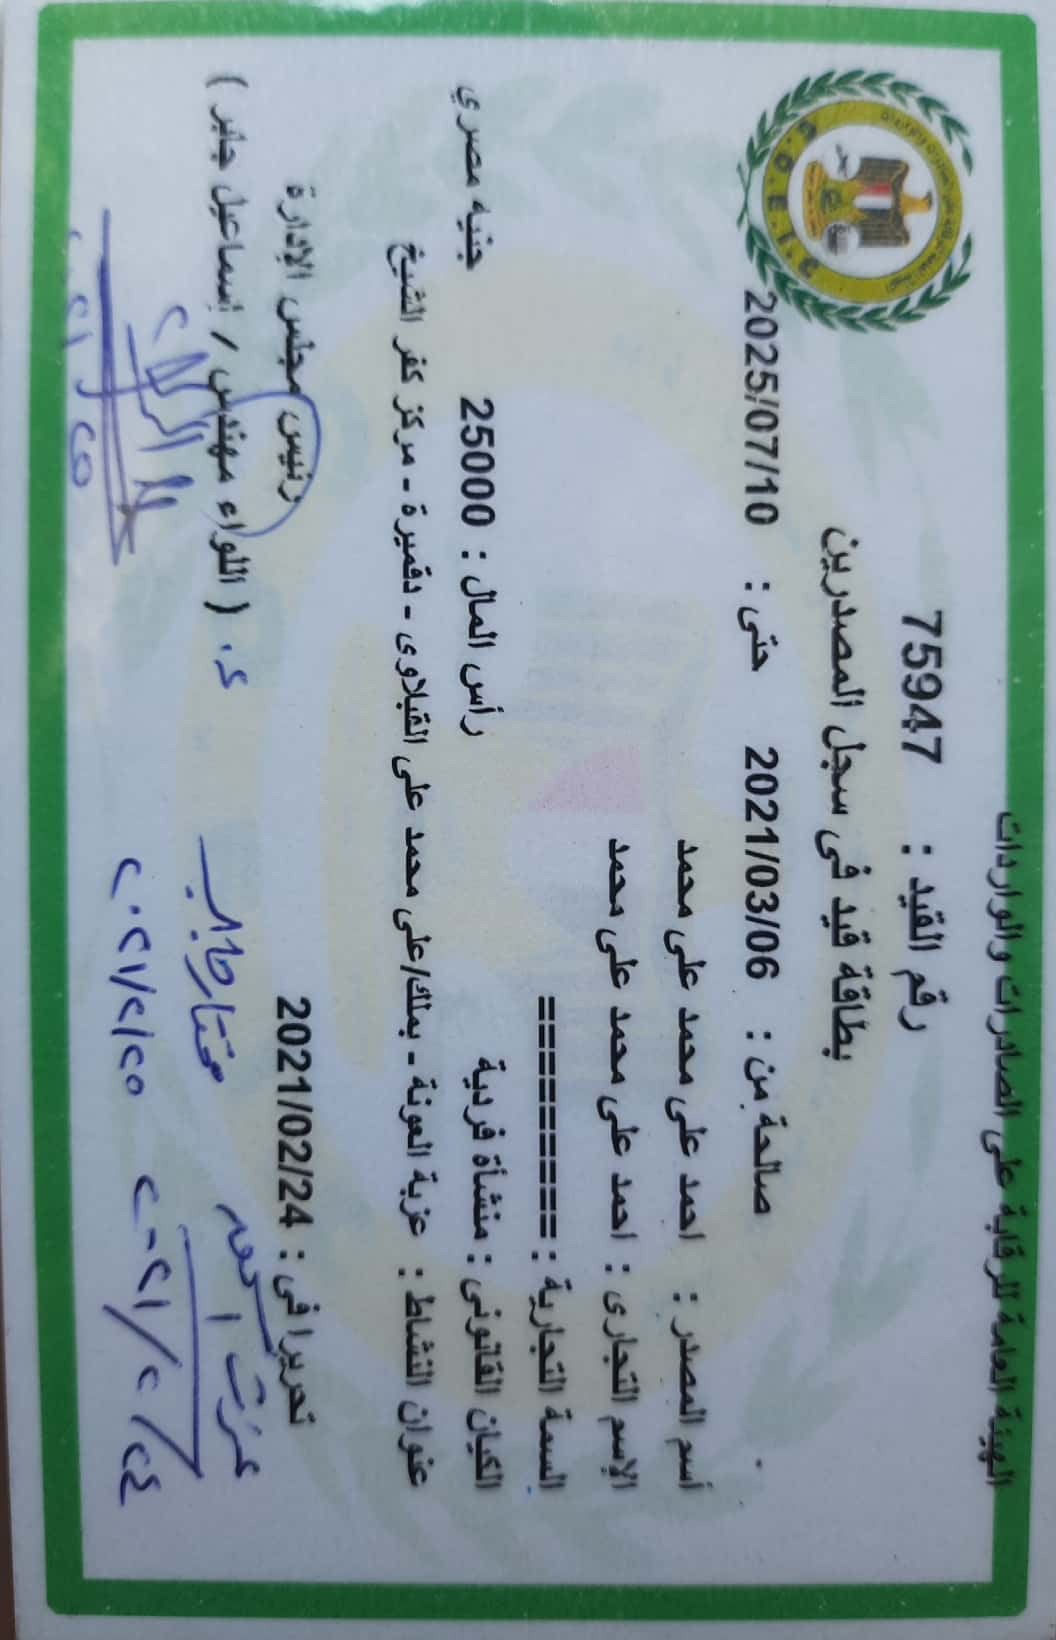 الهيئة العامة للرقابة على الصادرات والواردات
رقم القيد : 75947
بطاقة قيد فى سجل المصدرين
صالحة من : 2021/03/06 حتى : 2025/07/10
أسم المصدر : احمد على محمد على محمد
الإسم التجارى : احمد على محمد على محمد
السمة التجارية : ==========
الكيان القانونى : منشأة فردية رأس المال : 25000 جنيه مصري
عنوان النشاط : عزبة العونة - بملك/على محمد على القبلاوى - دقميرة - مركز كفر الشيخ
تحريرا فى : 2021/02/24 رئيس مجلس الإدارة
( اللواء مهندس / إسماعيل جابر )
G.O.E.I.C